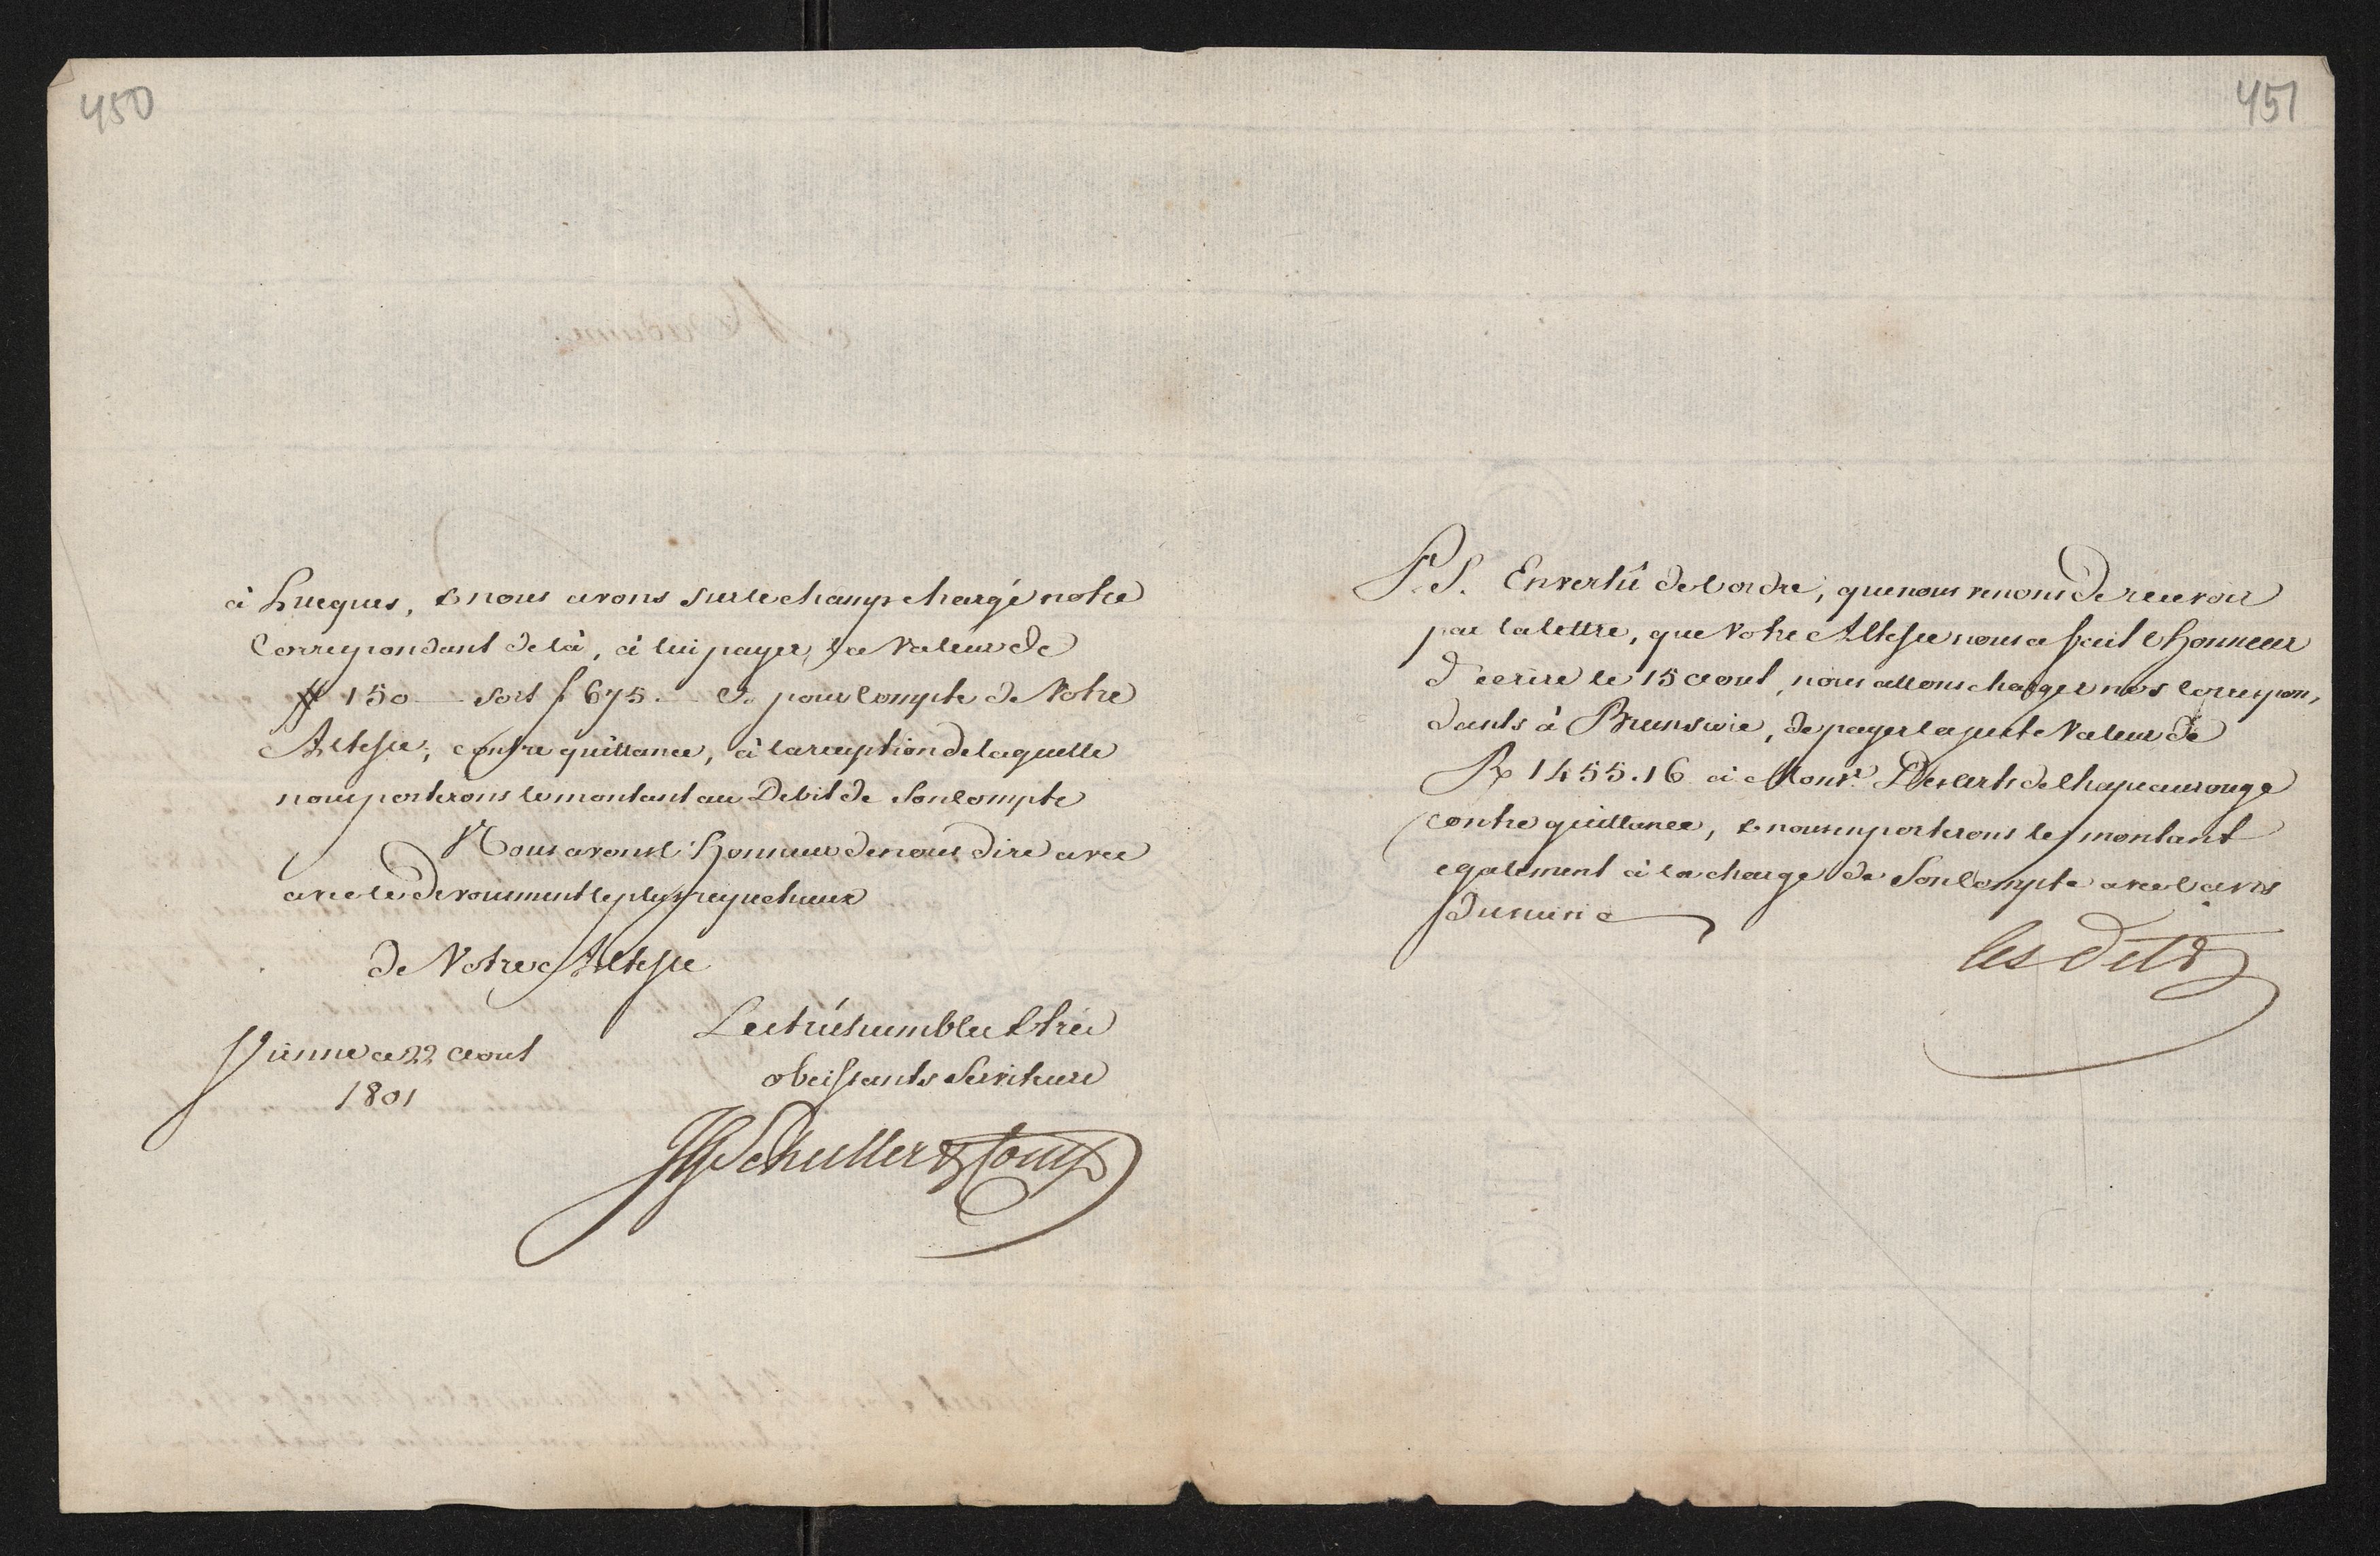 450
à Lucques, & nous avons sur le champ chargé notre
Correspondant de là, à lui payer, la valeur de
# 150 — soit f 675.— Co pour compte de Votre
Altesse, contre quittance, à la reception de laquelle
nous porterons le montant au Debit de Son compte
Nous avons l'honneur de nous dire avec
avec le devouement le plus respectueux
de Votre Altesse
Les très humbles & très
obeissants Serviteurs
Vienne ce 22 aout
1801
JG Schuller & Comp
451
P.S. En vertû de l'ordre, que nous venons de recevoir
par la lettre, que Votre Altesse nous a fait l'honneur
d'ecrire le 15 aout, nous allons charger nos correspon,
dants à Brunswic, de payer la juste Valeur de
R 1455.16 à Monsr. Des Arts de Chapeaurouge
contre quittance, & nous en porterons le montant
egalement à la charge de Son Compte avec l'avis
les dits